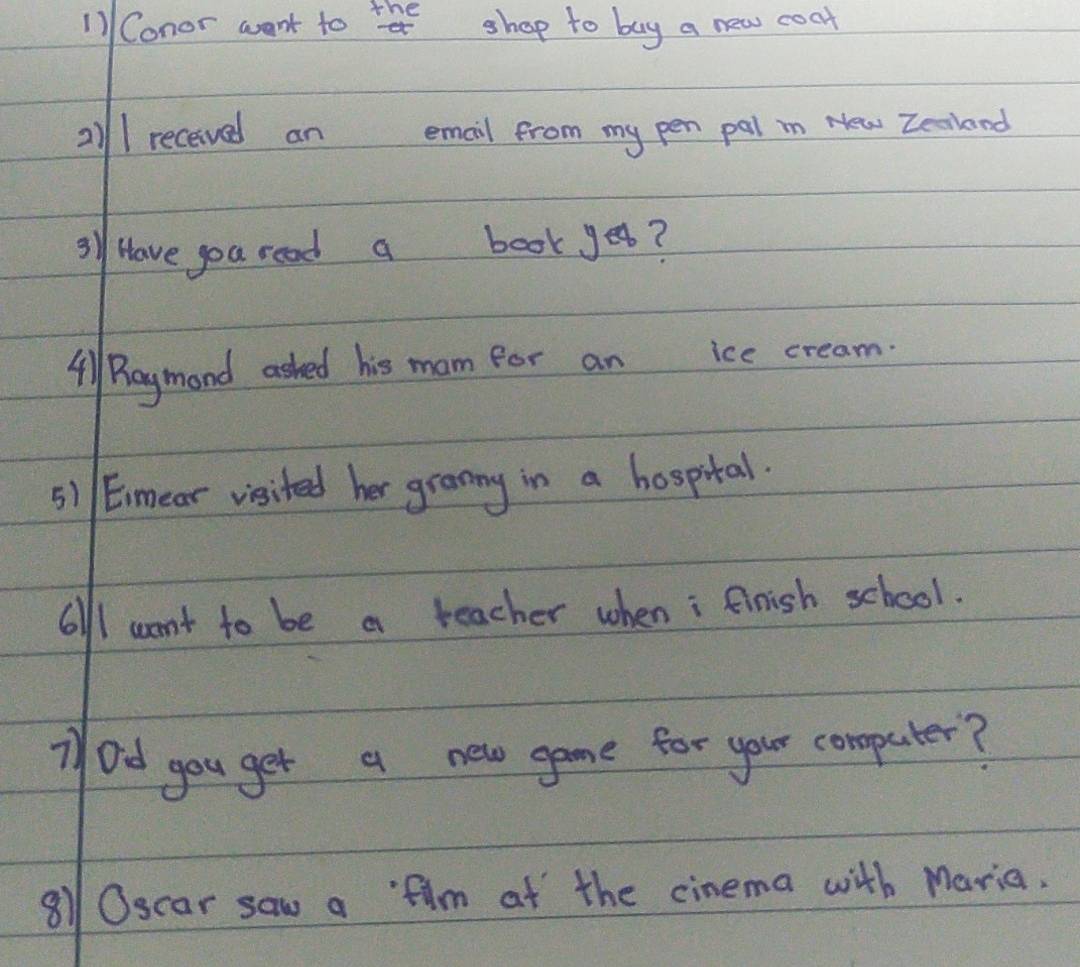 1) Conor went to the a shop to buy a new coat
2) I received an email from my pen pal in New Zealand
3) Have you read a book yet?
4) Raymond asked his mam for an ice cream.
5) Eimear visited her granny in a hospital.
6) I want to be a teacher when i finish school.
7) Did you get a new game for your computer?
8) Oscar saw a film at the cinema with Maria.